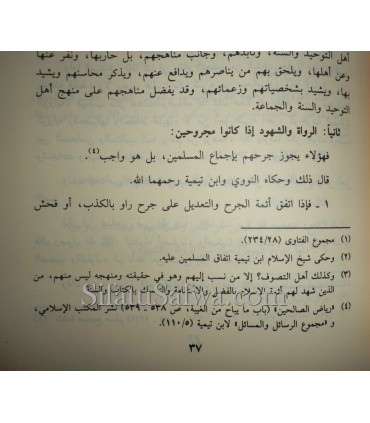 أهل التوحيد والسنة، ونابذهم، وجانب مناهجهم، بل حاربها، ونفر عنها
وعن أهلها، ويلحق بهم من يناصرهم ويدافع عنهم، ويذكر محاسنهم ويشيد
بها، ويشيد بشخصياتهم وزعمائهم، وقد يفضل مناهجهم على منهج أهل
التوحيد والسنة والجماعة.
ثانياً: الرواة والشهود إذا كانوا مجروحين:
فهؤلاء يجوز جرحهم بإجماع المسلمين، بل هو واجب(٤)
قال ذلك وحكاه النووي وابن تيمية رحمهما الله.
١ ـ فإذا اتفق أئمة الجرح والتعديل على جرح راو بالكذب، أو فحش
(١) مجموع الفتاوى (٢٣٤/٢٨).
(٢) وحكى شيخ الإسلام ابن تيمية اتفاق المسلمين عليه.
(٣) وكذلك أهل التصوف؟ إلا من نسب إليهم وهو في حقيقته ومنهجه ليس منهم، من
الذين شهد لهم أئمة الإسلام بالفضل والتمسك بالكتاب والسنة.
(٤) «رياض الصالحين» (باب ما يباح من الغيبة، ص ٥٣٨ ـ ٥٣٩) نشر المكتب الإسلامي،
و «مجموع الرسائل والمسائل» لابن تيمية (١١٠/٥).
SifatuSafwa.com
٣٧